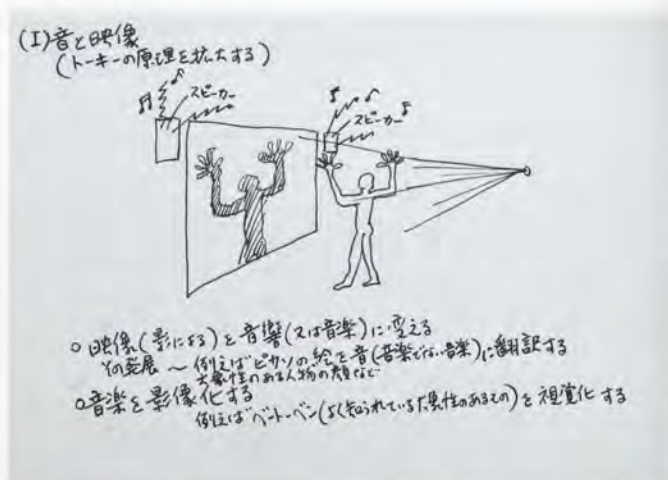 (I)音と映像
(トーキーの原理を拡大する)
スピーカー
スピーカー
○映像(影による)を音響(又は音楽)に変える
その発展 〜 例えばピカソの絵を音(音楽でない音楽)に翻訳する
大衆性のある人物の顔など
○音楽を影像化する
例えばベートーベン(よく知られている大衆性のあるもの)を視覚化する